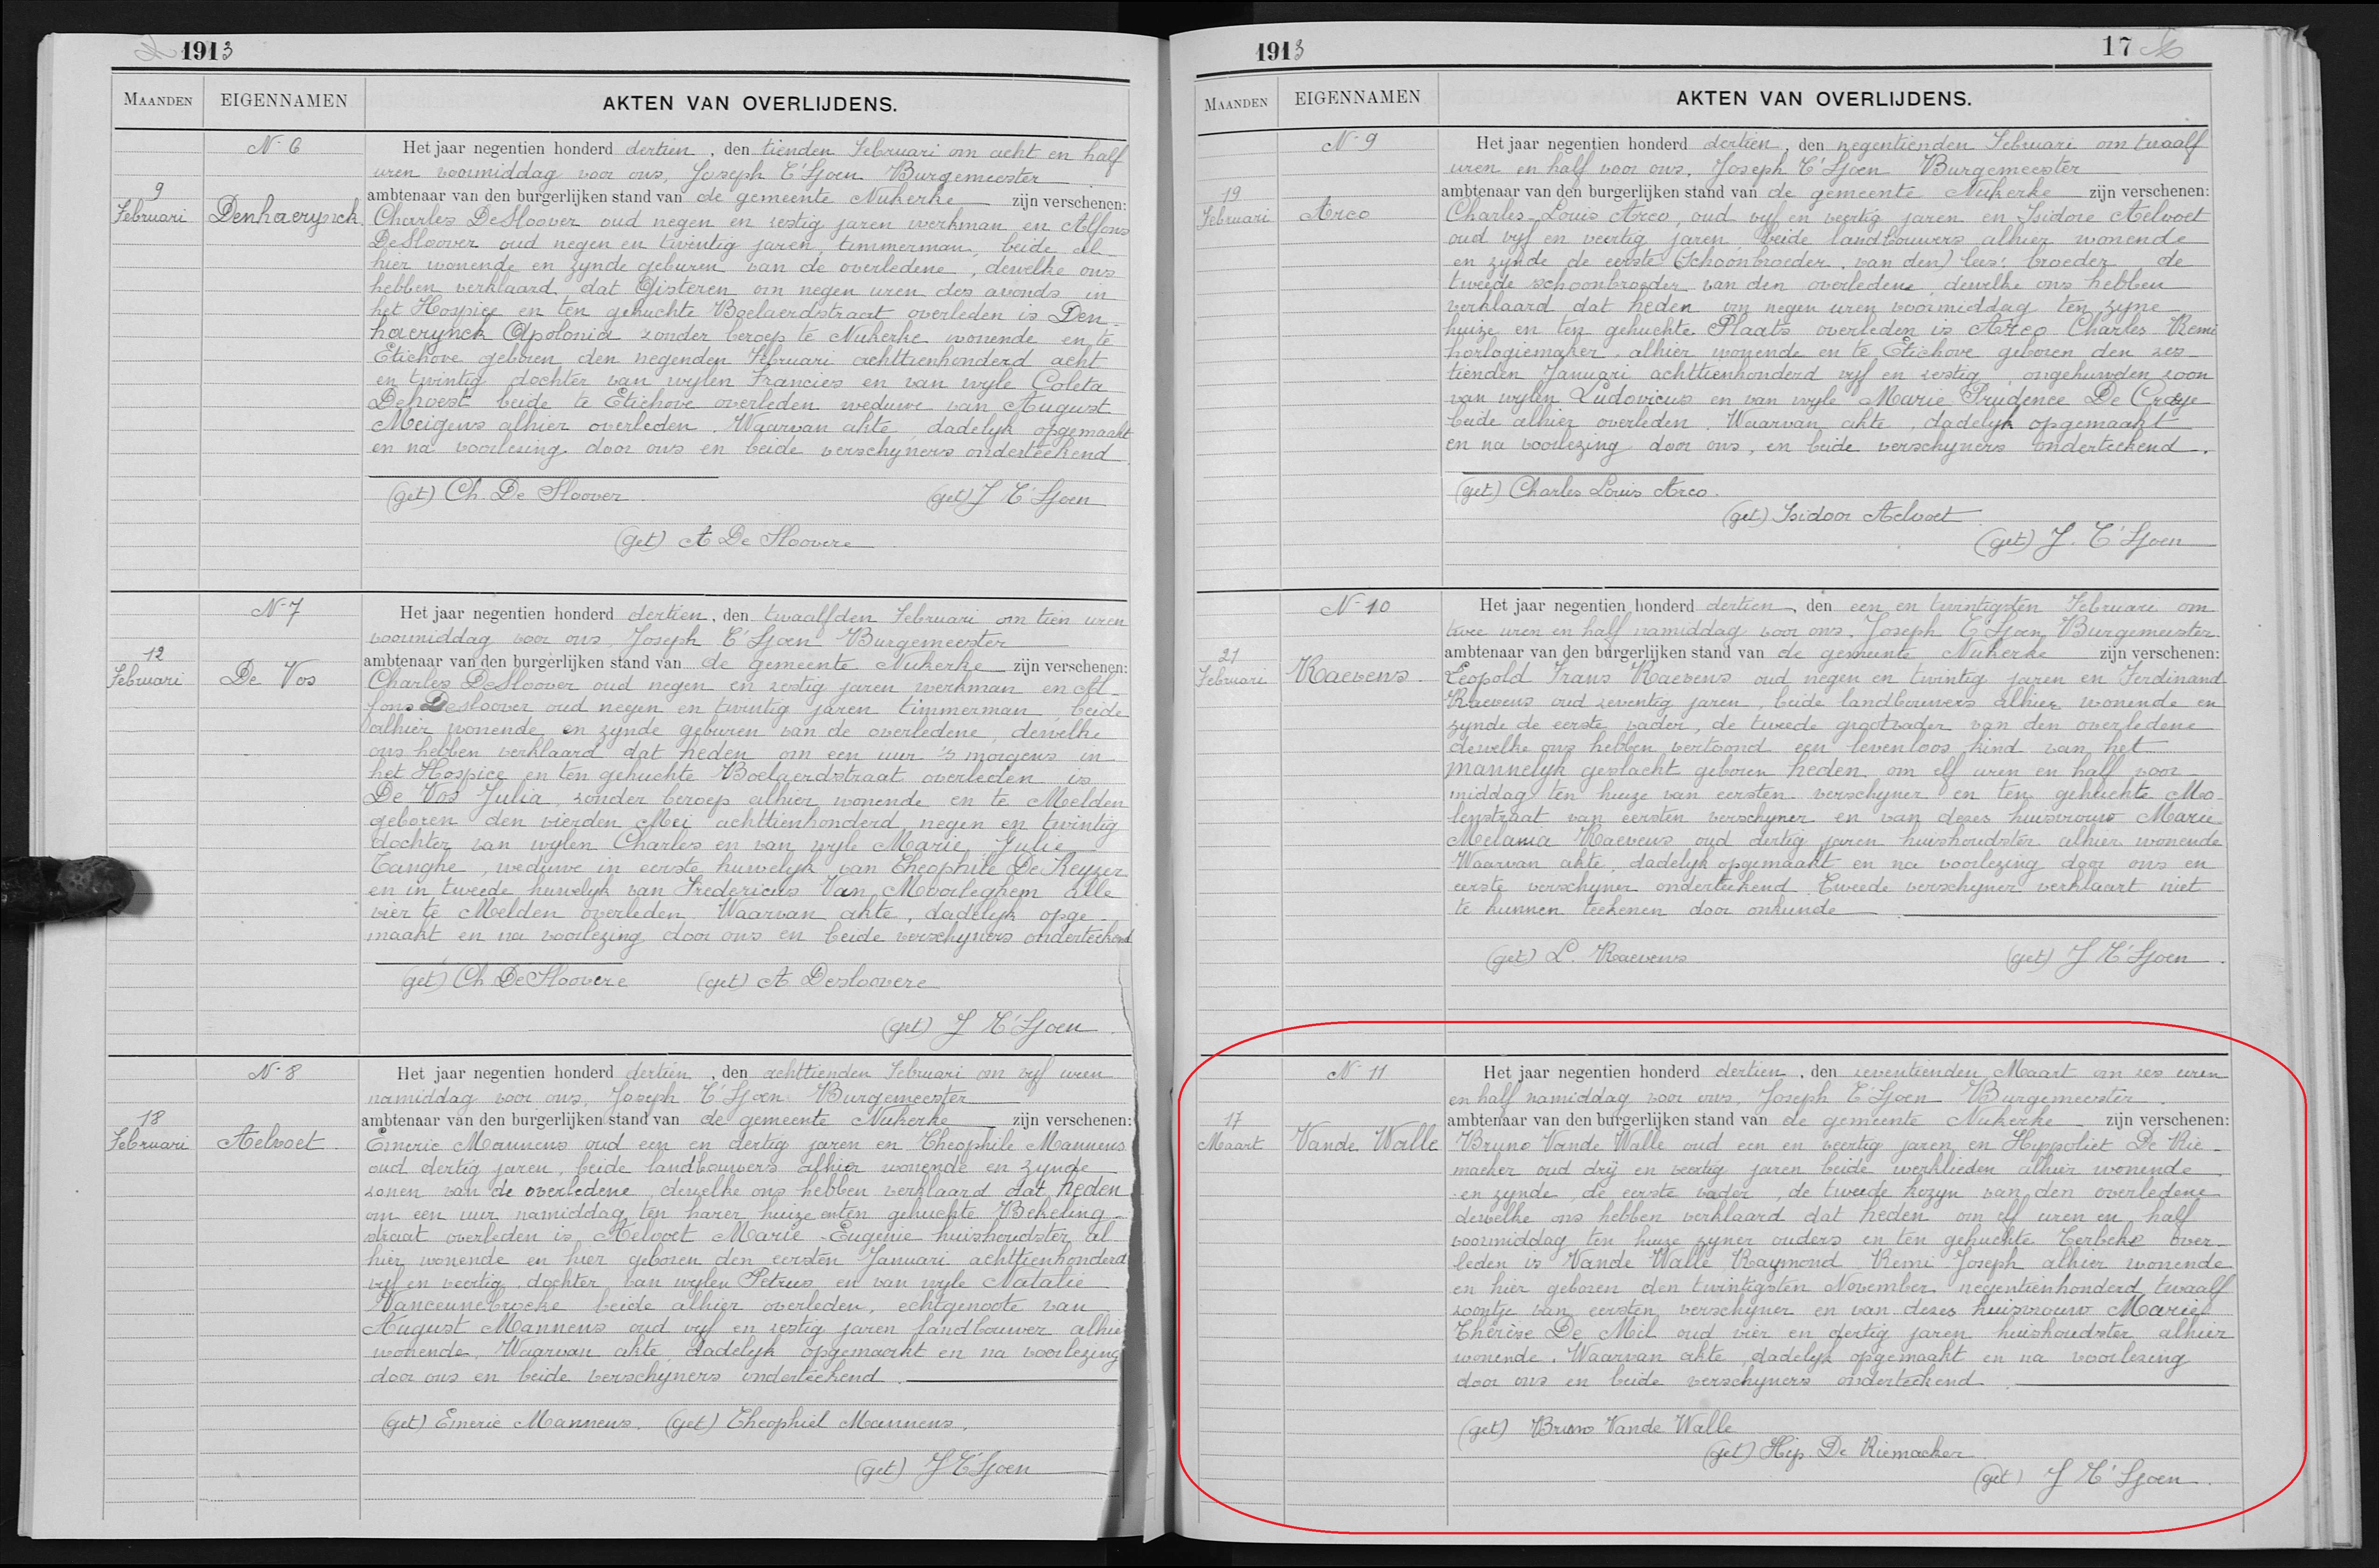 1913
MAANDEN EIGENNAMEN AKTEN VAN OVERLIJDENS.
N- 6
9
Februari
Denhaerynck
Het jaar negentien honderd dertien, den tienden Februari om acht en half
uren voormiddag voor ons, Joseph T'Sjoen Burgemeester
ambtenaar van den burgerlijken stand van de gemeente Nukerke zijn verschenen:
Charles DeSloover oud negen en zestig jaren werkman en Alfons
DeSloover oud negen en twintig jaren, timmerman, beide al-
hier wonende en zynde geburen van de overledene, dewelke ons
hebben verklaard dat Gisteren om negen uren des avonds in
het Hospice en ten gehuchte Boelaerdstraat overleden is Den-
haerynck Apolonia zonder beroep te Nukerke wonende en te
Etichove geboren den negenden Februari achttienhonderd acht
en twintig dochter van wylen Francies en van wyle Coleta
Dehoest beide te Etichove overleden weduwe van August
Meigens alhier overleden. Waarvan akte, dadelyk opgemaakt
en na voorlezing door ons en beide verschyners onderteekend
(get) Ch. De Sloover. (get) J T'Sjoen
(get) A De Sloovere
N- 7
12
Februari
De Vos
Het jaar negentien honderd dertien, den twaalfden Februari om tien uren
voormiddag voor ons Joseph T'Sjoen Burgemeester
ambtenaar van den burgerlijken stand van de gemeente Nukerke zijn verschenen:
Charles DeSloover oud negen en zestig jaren werkman en Al-
fons Desloover oud negen en twintig jaren timmerman, beide
alhier wonende en zynde geburen van de overledene, dewelke
ons hebben verklaard dat heden om een uur 's morgens in
het Hospice en ten gehuchte Boelaerdstraat overleden is
De Vos Julia, zonder beroep alhier wonende en te Melden
geboren den vierden Mei achttienhonderd negen en twintig
dochter van wylen Charles en van wyle Marie Julie
Tanghe, weduwe in eerste huwelyk van Theophile De Keyzer
en in tweede huwelyk van Fredericus Van Moorleghem alle
vier te Melden overleden. Waarvan akte, dadelyk opge-
maakt en na voorlezing door ons en beide verschyners onderteekend
(get) Ch DeSloovere (get) A Desloovere
(get) J T'Sjoen.
N- 8
18
Februari
Aelvoet
Het jaar negentien honderd dertien, den achttienden Februari om vyf uren
namiddag voor ons, Joseph T'Sjoen Burgemeester
ambtenaar van den burgerlijken stand van de gemeente Nukerke zijn verschenen:
Emeric Mannens oud een en dertig jaren en Theophile Mannens
oud dertig jaren, beide landbouwers alhier wonende en zynde
zonen van de overledene, dewelke ons hebben verklaard dat heden
om een uur namiddag ten harer huize enten gehuchte Bekeling-
straat overleden is Aelvoet Marie-Eugenie huishoudster al-
hier wonende en hier geboren den eersten Januari achttienhonderd
vyf en veertig, dochter van wylen Petrus en van wyle Natalie
Vanceunebroeke beide alhier overleden, echtgenoote van
August Mannens oud vyf en zestig jaren landbouwer alhie
wonende. Waarvan akte, dadelyk opgemaakt en na voorlezing
door ons en beide verschyners onderteekend.
(get) Emeric Mannens. (get) Theophiel Mannens.
(get) J T'Sjoen
1913 17
MAANDEN EIGENNAMEN AKTEN VAN OVERLIJDENS.
N- 9
19
Februari
Arco
Het jaar negentien honderd dertien, den negentienden Februari om twaalf
uren en half voor ons, Joseph T'Sjoen Burgemeester
ambtenaar van den burgerlijken stand van de gemeente Nukerke zijn verschenen:
Charles-Louis Arco, oud vyf en veertig jaren en Isidore Aelvoet
oud vyf en veertig jaren, beide landbouwers alhier wonende
en zynde de eerste (schoonbroeder van den) lees: broeder de
tweede schoonbroeder van den overledene, dewelke ons hebben
verklaard dat heden om negen uren voormiddag ten zyne
huize en ten gehuchte Plaats overleden is Arco Charles Remi
horlogiemaker, alhier wonende en te Etichove geboren den zes-
tienden Januari achttienhonderd vyf en zestig, ongehuwden zoon
van wylen Ludovicus en van wyle Marie Prudence De Craeye
beide alhier overleden. Waarvan akte, dadelyk opgemaakt
en na voorlezing door ons, en beide verschyners onderteekend.
(get) Charles Louis Arco.
(get) Isidoor Aelvoet
(get) J. T'Sjoen
N- 10
21
Februari
Raevens.
Het jaar negentien honderd dertien, den een en twintigsten Februari om
twee uren en half namiddag voor ons, Joseph T'Sjoen, Burgemeester
ambtenaar van den burgerlijken stand van de gemeente Nukerke zijn verschenen:
Leopold Frans Raevens oud negen en twintig jaren en Ferdinand
Raevens oud zeventig jaren, beide landbouwers alhier wonende en
zynde de eerste vader, de tweede grootvader van den overledene
dewelke ons hebben vertoond een levenloos kind van het
mannelyk geslacht geboren heden om elf uren en half voor-
middag ten huize van eersten verschyner en ten gehuchte Mo-
lenstraat van eersten verschyner en van dezes huisvrouw Marie
Melania Raevens oud dertig jaren huishoudster alhier wonende
Waarvan akte, dadelyk opgemaakt en na voorlezing door ons en
eerste verschyner onderteekend. Tweede verschyner verklaart niet
te kunnen teekenen door onkunde
(get) L. Raevens (get) J T'Sjoen.
N- 11
17
Maart
Vande Walle
Het jaar negentien honderd dertien, den zeventienden Maart om zes uren
en half namiddag voor ons, Joseph T'Sjoen Burgemeester.
ambtenaar van den burgerlijken stand van de gemeente Nukerke zijn verschenen:
Bruno Vande Walle oud een en veertig jaren en Hyppoliet De Rie-
macker oud dry en veertig jaren beide werklieden alhier wonende
en zynde, de eerste vader, de tweede kozyn van den overledene
dewelke ons hebben verklaard dat heden om elf uren en half
voormiddag ten huize zyner ouders en ten gehuchte Terbeke over-
leden is Vande Walle Raymond Remi Joseph alhier wonende
en hier geboren den twintigsten November negentienhonderd twaalf
zoontje van eersten verschyner en van dezes huisvrouw Marie
Therèse De Mil oud vier en dertig jaren huishoudster alhier
wonende. Waarvan akte, dadelyk opgemaakt en na voorlezing
door ons en beide verschyners onderteekend.
(get) Bruno Vande Walle
(get) Hip. De Riemacker
(get) J T'Sjoen.